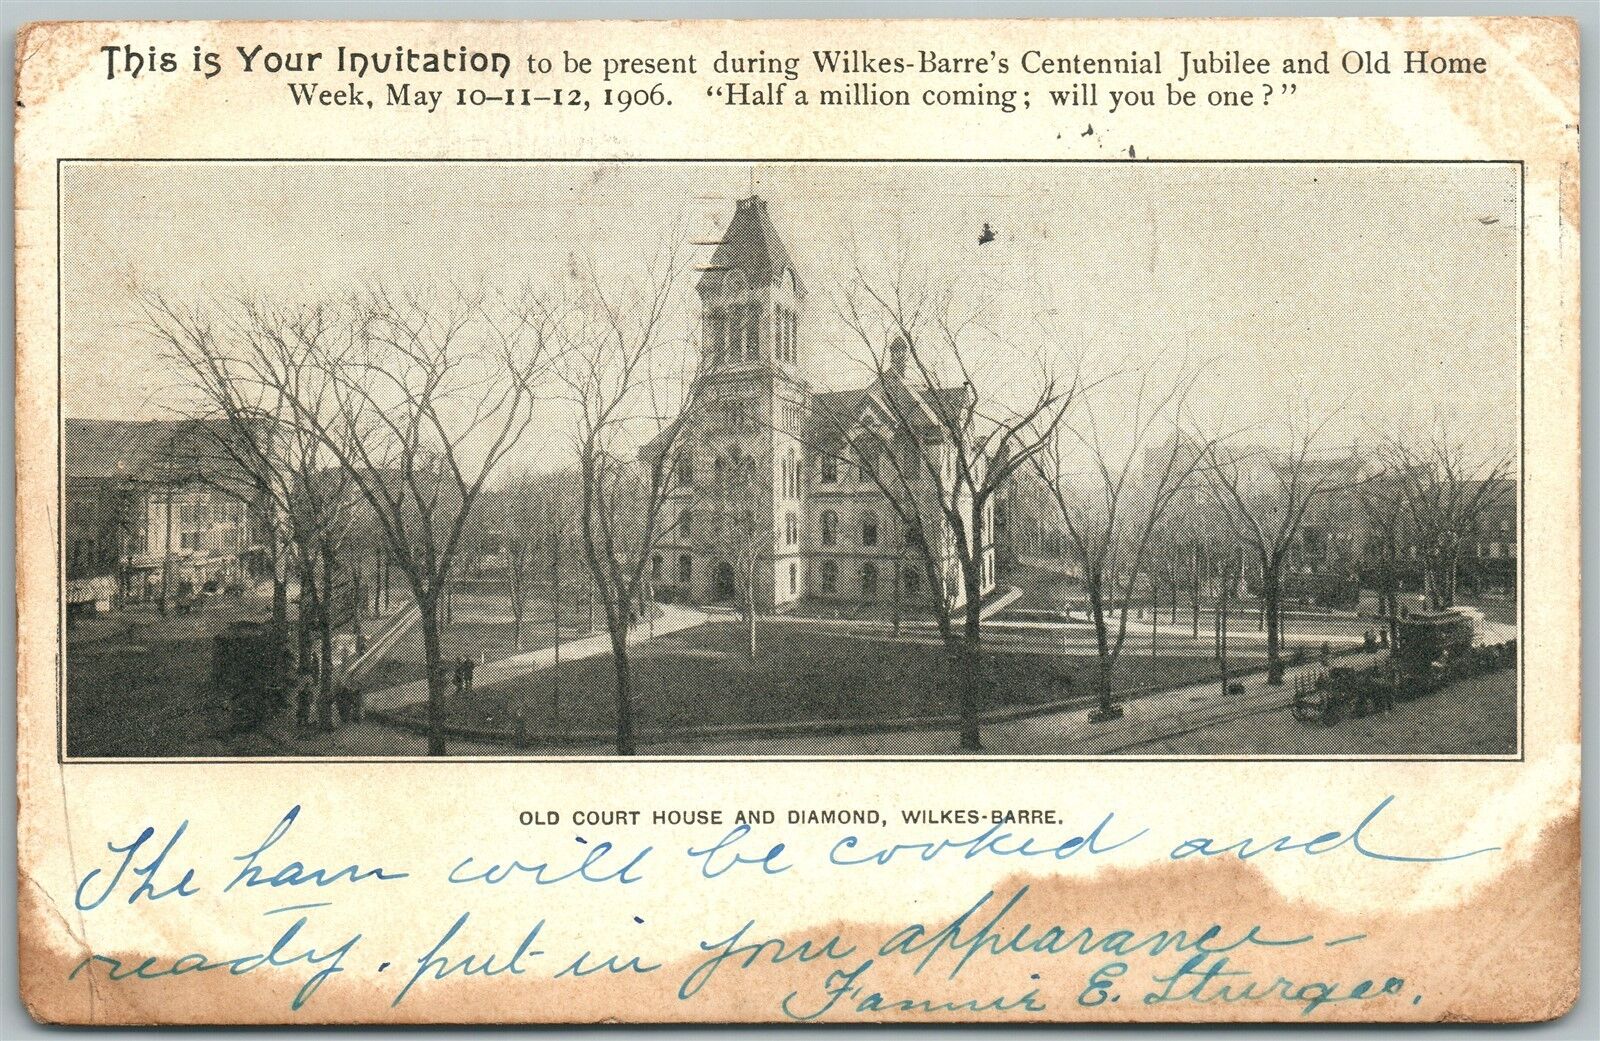 This is Your Invitation to be present during Wilkes-Barre's Centennial Jubilee and Old Home
Week, May 10–11–12, 1906. "Half a million coming; will you be one?"
OLD COURT HOUSE AND DIAMOND, WILKES-BARRE.
The ham will be cooked and
ready. put in your appearance –
Fannie E. Sturges.